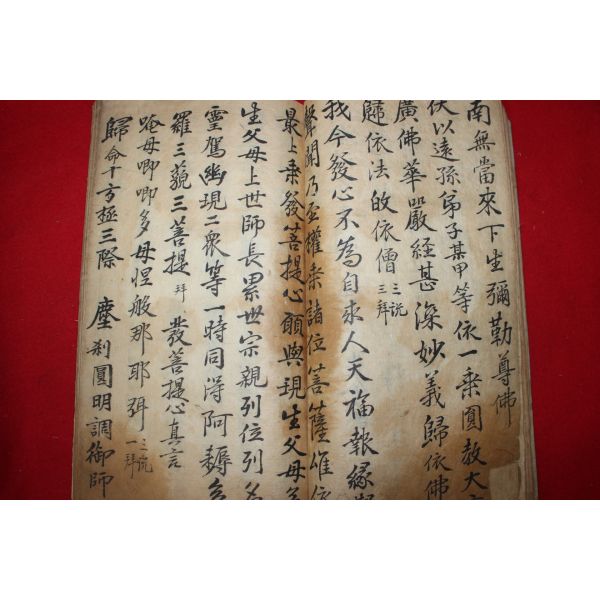 南無當來下生彌勒尊佛
伏以遠孫弟子某甲等依一乘圓教大方
廣佛華嚴經甚深妙義歸依佛
歸依法歸依僧三說三拜
我今發心不為自求人天福報緣覺
聲聞乃至權乘諸位菩薩唯依
最上乘發菩提心願與現生父母多
生父母上世師長累世宗親列位列名
靈駕幽現二衆等一時同淂阿耨多
羅三藐三菩提拜 發菩提心真言
唵母唧唧多母怛般那耶弭三說一拜
歸命十方極三際 塵刹圓明調御師